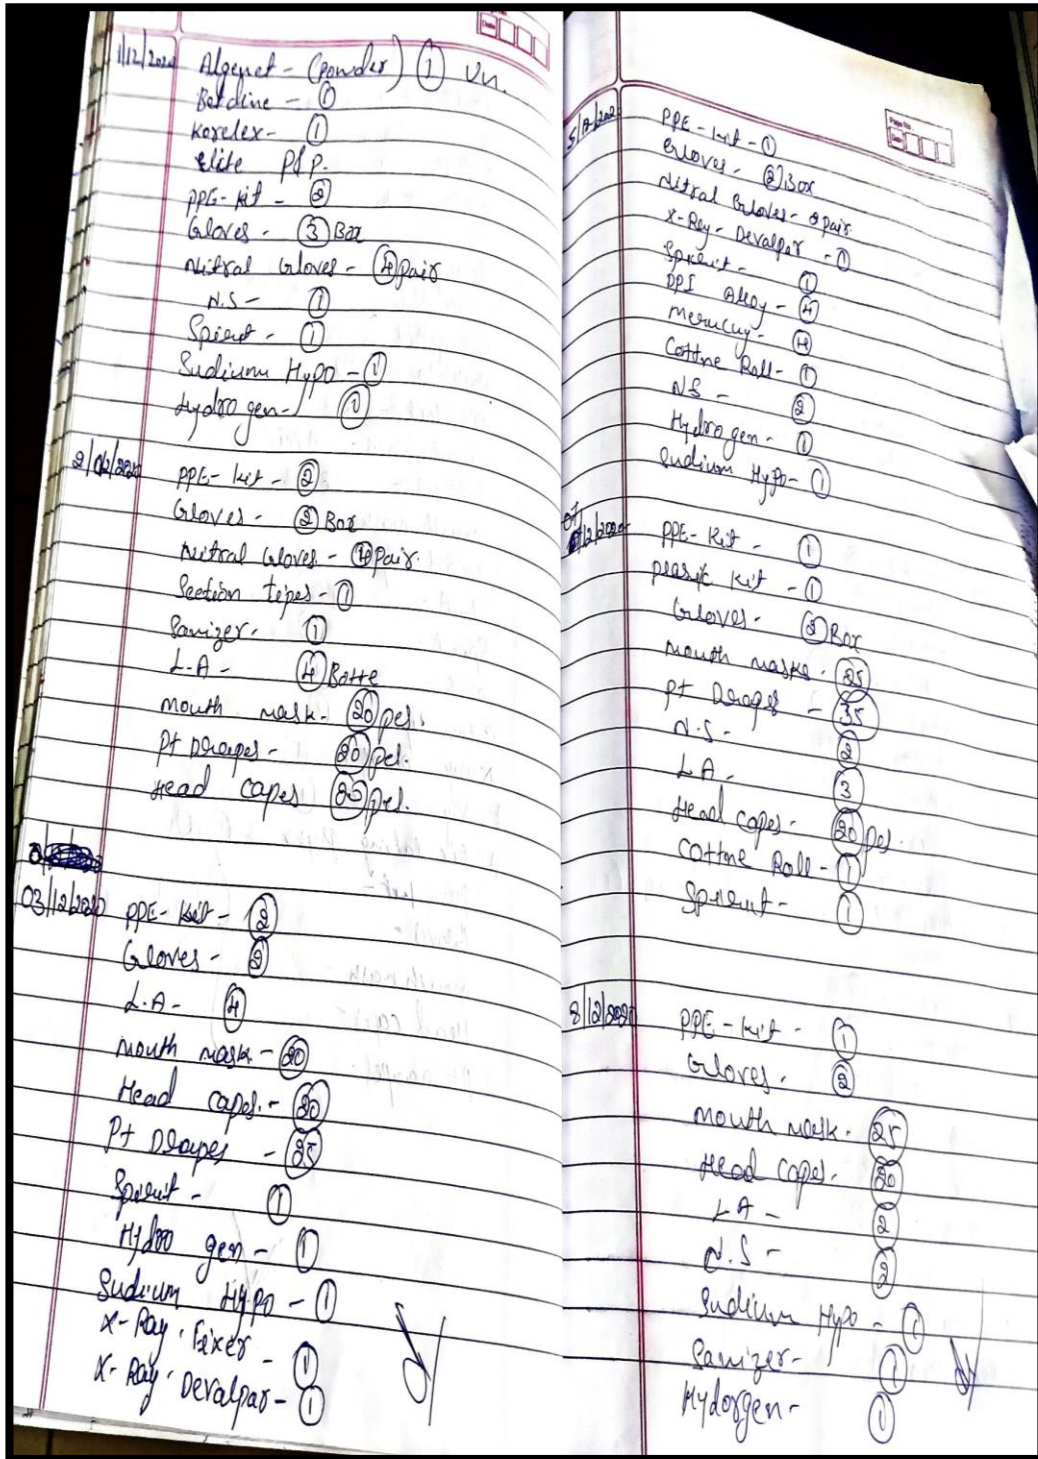 1/12/2020 Algenet - (powder) 1 Un.
Betdine - 1
Korelex - 1
Elite P&P.
PPE-kit - 2
Gloves - 3 Box
Nitral Gloves - 4 pair
N.S - 1
Spirut - 1
Sudium Hypo - 1
Hydrogen - 1
2/02/2020 PPE-ket - 2
Gloves - 2 Box
Nitral Gloves - 4 pair.
Section tipes - 1
Sanizer. 1
L.A - 4 Botte
mouth mask - 20 pes.
Pt Drapes - 20 pel.
Head capes 20 pes.
03/12/2020 PPE-kit - 2
Gloves - 2
L.A - 4
mouth mask - 20
Head capes. - 20
Pt Drapes - 25
Spirut - 1
Hydro gen - 1
Sudium Hypo - 1
X-Ray. Fixer - 1
X-Ray. Devalpar - 1
Page No.
Date
5/12/2020 PPE-kit - 1
Gloves. 2 Box
Nitral Gloves - pair
X-Ray - Devalpar - 1
Spirut - 1
DPI Alloy - 4
Merucuy - 4
Cottne Roll - 1
NS - 2
Hydrogen - 1
Sudium Hypo - 1
07/12/2020 PPE-Kit - 1
plasit kit - 1
Gloves. 2 Box
mouth masks. 25
Pt Drapes - 35
N.S - 2
LA - 3
Head capes. 20 pes.
Cottne Roll - 1
Spirut - 1
8/12/2020 PPE-kit - 1
Gloves. 2
mouth mask. 25
Head capes. 20
LA - 2
N.S - 2
Sudium Hypo - 1
Sanizer - 1
Hydorgen - 1